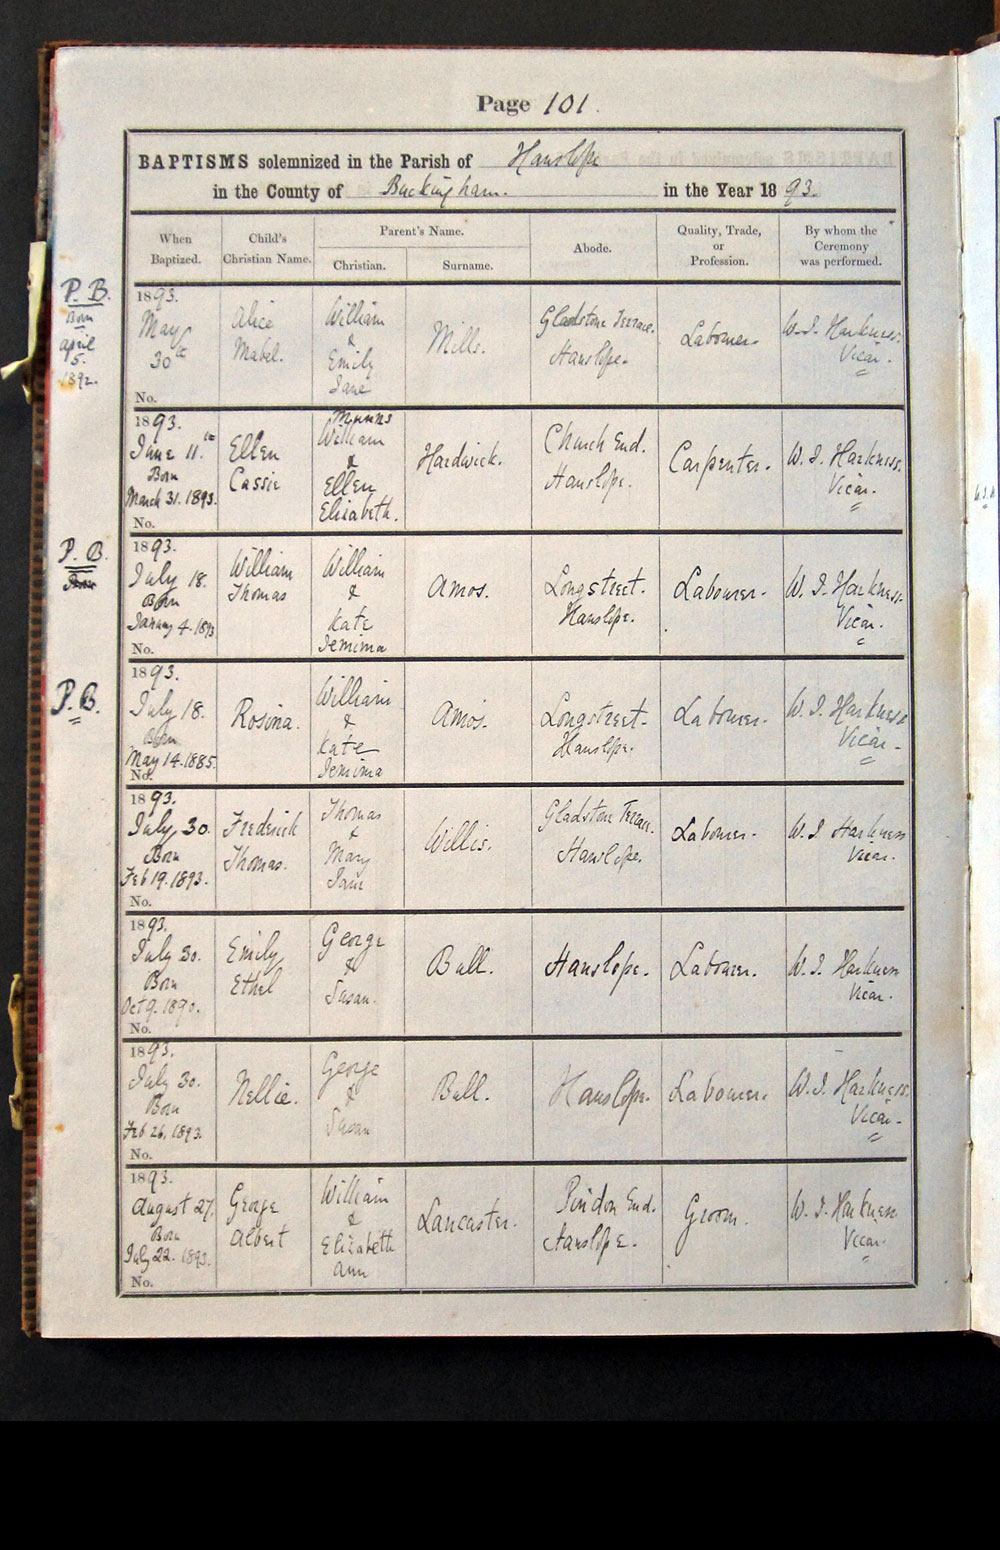 Page 101.
BAPTISMS solemnized in the Parish of Hanslope
in the County of Buckingham. in the Year 1893.
When Baptized.
Child's Christian Name.
Parent's Name.
Christian.
Surname.
Abode.
Quality, Trade, or Profession.
By whom the Ceremony was performed.
P. B.
Born
April
5.
1892.
1893.
May
30th
No.
Alice
Mabel.
William
&
Emily
Jane
Mills.
Gladstone Terrace.
Hanslope.
Labourer.
W. J. Harkness.
Vicar.
1893.
June 11.th
Born
March 31. 1893.
No.
Ellen
Cassie
Munns
William
&
Ellen
Elizabeth.
Hardwick.
Church End.
Hanslope.
Carpenter.
W. J. Harkness.
Vicar.
P. B.
1893.
July 18.
Born
January 4. 1893
No.
William
Thomas
William
&
Kate
Jemima
Amos.
Longstreet.
Hanslope.
Labourer.
W. J. Harkness.
Vicar.
P. B.
1893.
July 18.
Born
May 14. 1885.
No.
Rosina.
William
&
Kate
Jemima
Amos.
Longstreet.
Hanslope.
Labourer.
W. J. Harkness
Vicar.
1893.
July 30.
Born
Feb 19. 1893.
No.
Frederick
Thomas.
Thomas
&
Mary
Jane
Willis.
Gladstone Terrace.
Hanslope.
Labourer.
W. J Harkness
Vicar.
1893.
July 30.
Born
Oct 9. 1890.
No.
Emily
Ethel
George
&
Susan.
Bull.
Hanslope.
Labourer.
W. J. Harkness
Vicar.
1893.
July 30.
Born
Feb 26. 1893.
No.
Nellie.
George
&
Susan
Bull.
Hanslope.
Labourer.
W. J. Harkness.
Vicar.
1893.
August 27.
Born
July 22. 1893.
No.
George
Albert
William
&
Elizabeth
Ann
Lancaster.
Pindon End.
Hanslope.
Groom.
W. J. Harkness
Vicar.